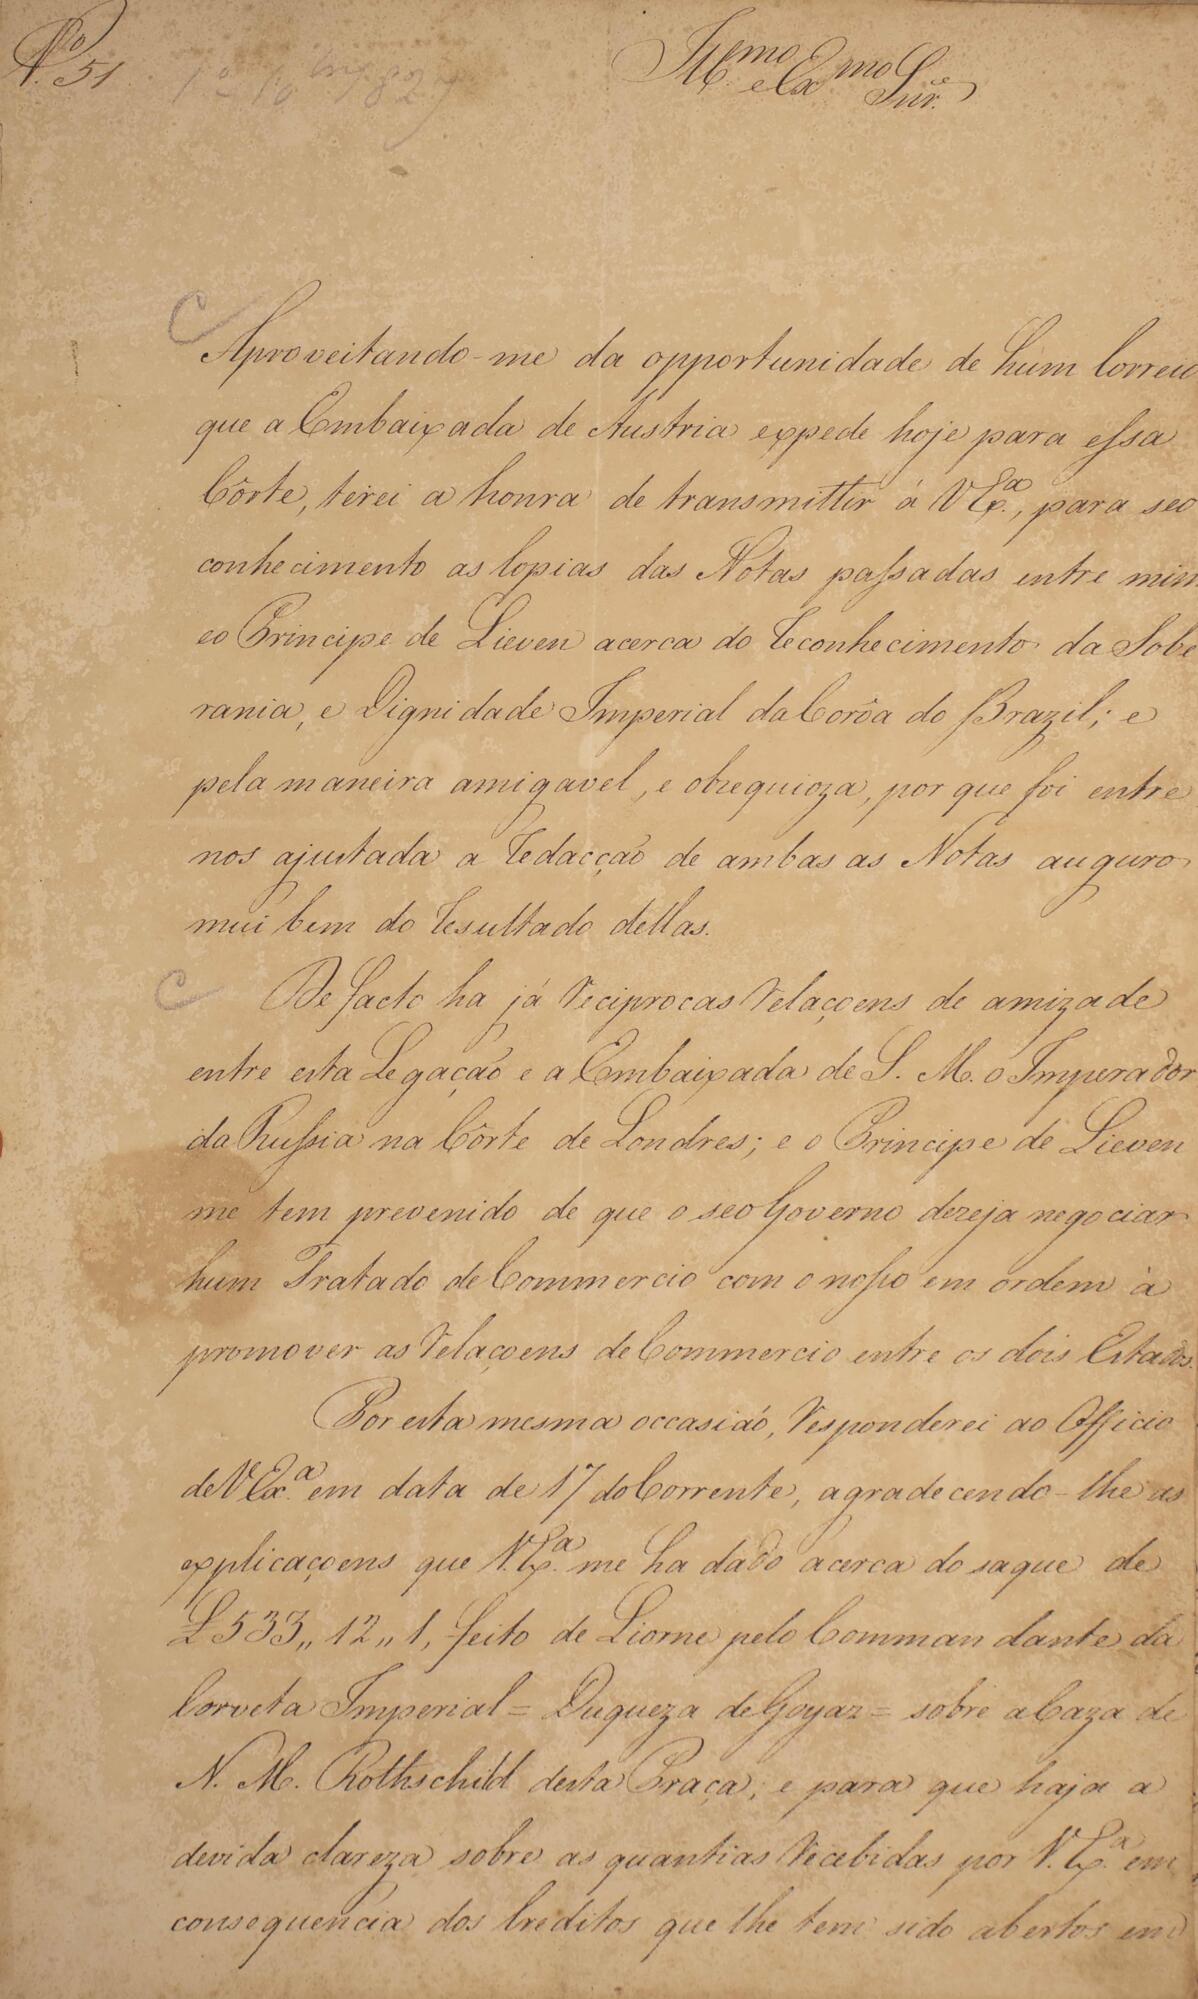 N.º 51
Ill.mo e Ex.mo Snr.
Aproveitando-me da opportunidade de hum Correio
que a Embaixada de Austria expede hoje para essa
Côrte, terei a honra de transmittir á V Ex.ª, para seo
conhecimento as Copias das Notas passadas entre mim
eo Principe de Lieven acerca do Reconhecimento da Sobe
rania, e Dignidade Imperial da Corôa do Brazil; e
pela maneira amigavel, e obzequioza, por que foi entre
nos ajustada a Redacção de ambas as Notas auguro
mui bem do Resultado dellas.
De facto ha já Reciprocas Relaçoens de amizade
entre esta Legação e a Embaixada de S. M. o Imperador
da Russia na Côrte de Londres; e o Principe de Lieven
me tem prevenido de que o seo Governo dezeja negociar
hum Tratado de Commercio com o nosso em ordem à
promover as Relaçoens de Commercio entre os dois Estados.
Por esta mesma occasião, Responderei ao Officio
de V Ex.ª em data de 17 do Corrente, agradecendo-lhe as
explicaçoens que V. Ex.ª me ha dado acerca do saque de
£ 533,, 12,, 1, feito de Liorne pelo Commandante da
Corveta Imperial = Duqueza de Goyaz = sobre a Caza de
N. M. Rothschild desta Praça; e para que haja a
devida clareza sobre as quantias Recebidas por V. Ex.ª em
consequencia dos Creditos que lhe tem sido abertos em